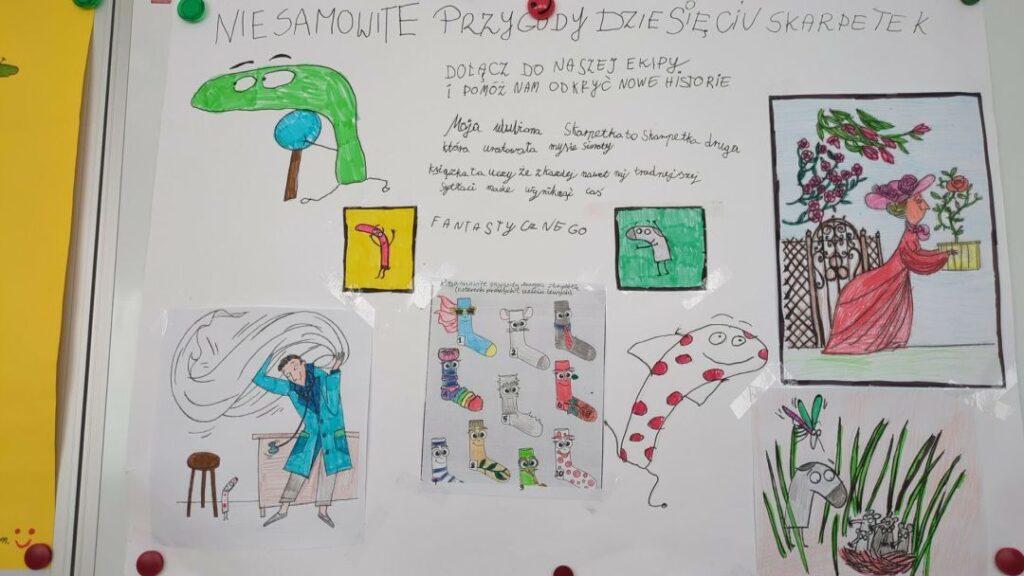 NIESAMOWITE PRZYGODY DZIESIĘCIU SKARPETEK
DOŁĄCZ DO NASZEJ EKIPY
I POMÓŻ NAM ODKRYĆ NOWE HISTORIE
Moja ulubiona Skarpetka to Skarpetka druga
która uratowała mysie Sieroty
Książka ta uczy że z każdej nawet naj trudniejszej
sytłaci może wyniknąć coś
FANTASTYCZNEGO
(czterech prawych i sześciu lewych)
1
2
3
5
8
10
m.